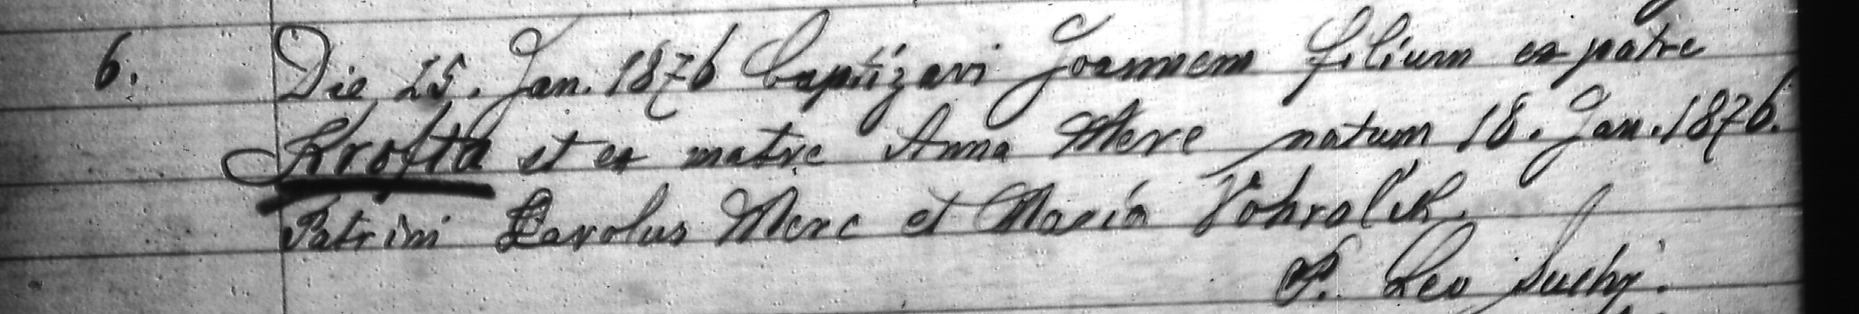 6. Die 25. Jan. 1876 baptizavi Joannem filium ex patre
Krofta et ex matre Anna natum 18. Jan. 1876.
Patrini Carolus et Maria Vohralik.
P. Leo Suchý.